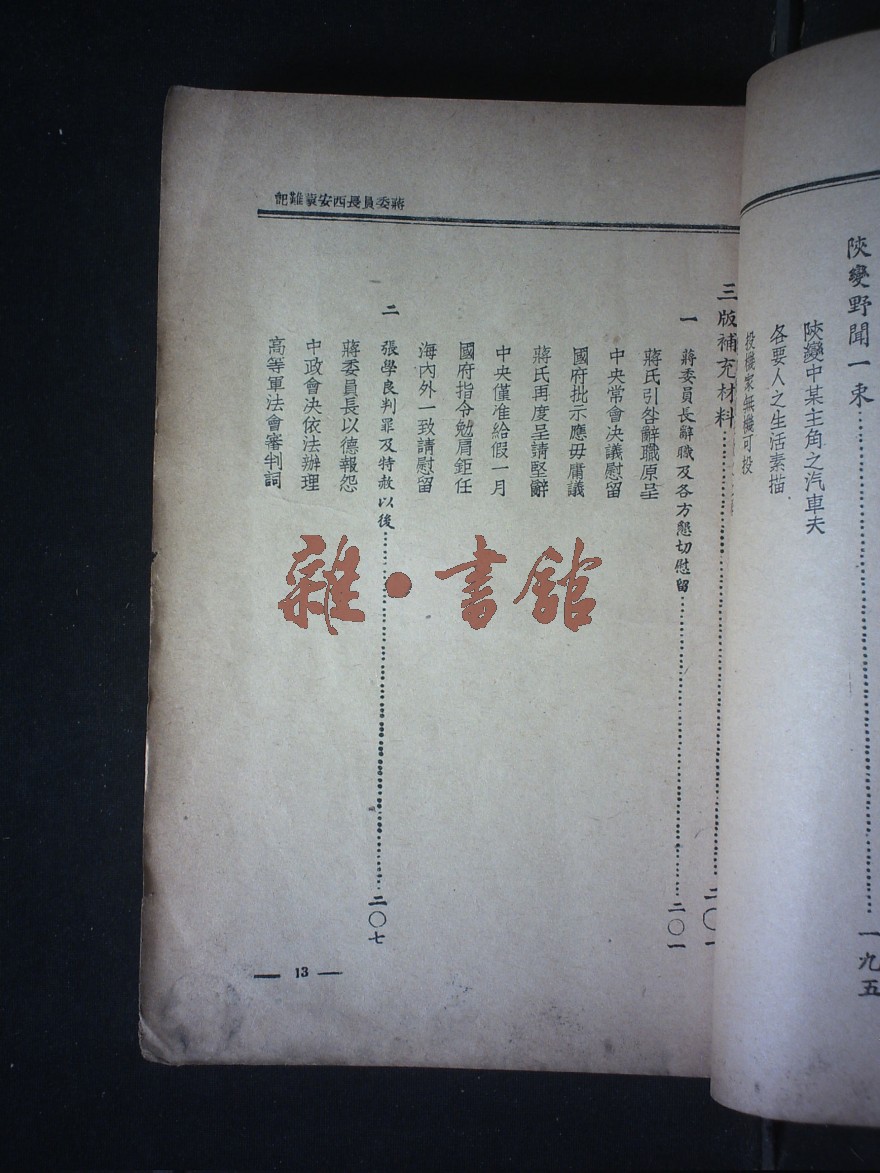 陝變野聞一束……一九五
陝變中某主角之汽車夫
各要人之生活素描
投機家無機可投
蔣委員長西安蒙難記
三版補充材料……二〇一
一 蔣委員長辭職及各方懇切慰留……二〇一
蔣氏引咎辭職原呈
中央常會決議慰留
國府批示應毋庸議
蔣氏再度呈請堅辭
中央僅准給假一月
國府指令勉肩鉅任
海內外一致請慰留
二 張學良判罪及特赦以後……二〇七
蔣委員長以德報怨
中政會決依法辦理
高等軍法會審判詞
— 13 —
雜·書館